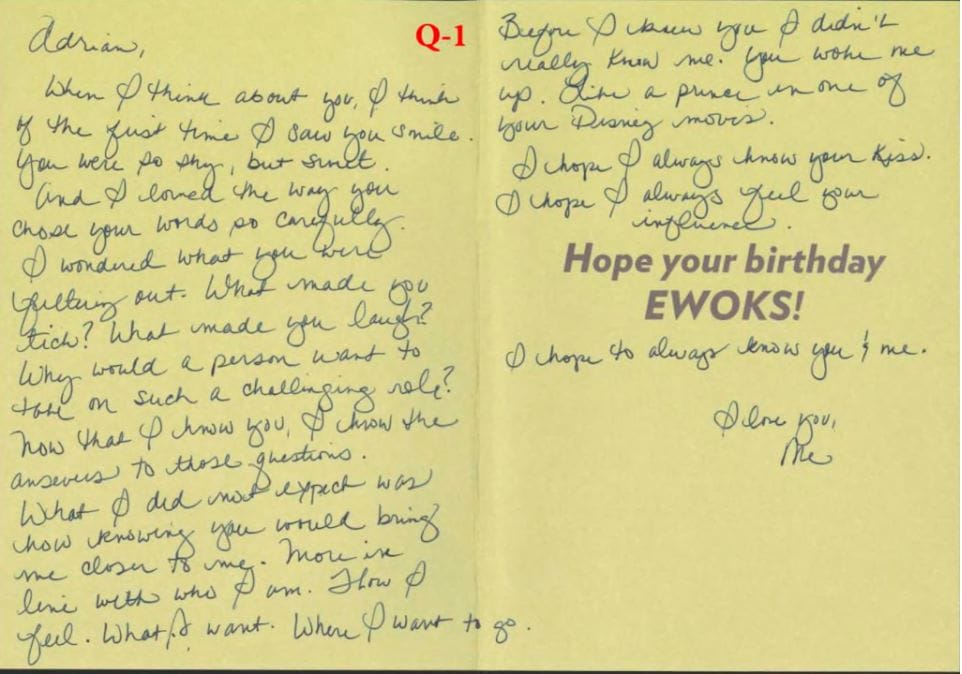 Adrian,
When I think about you, I think
of the first time I saw you smile.
You were so shy, but smit.
And I loved the way you
chose your words so carefully.
I wondered what you were
filtering out. What made you
tick? What made you laugh?
Why would a person want to
take on such a challenging role?
Now that I know you, I know the
answers to those questions.
What I did not expect was
how knowing you would bring
me closer to me. More in
line with who I am. How I
feel. What I want. Where I want to go.
Q-1
Before I knew you I didn't
really know me. You woke me
up. Like a prince in one of
your Disney movies.
I hope I always know your kiss.
I hope I always feel your
influence.
Hope your birthday
EWOKS!
I hope to always know you & me.
I love you,
Me